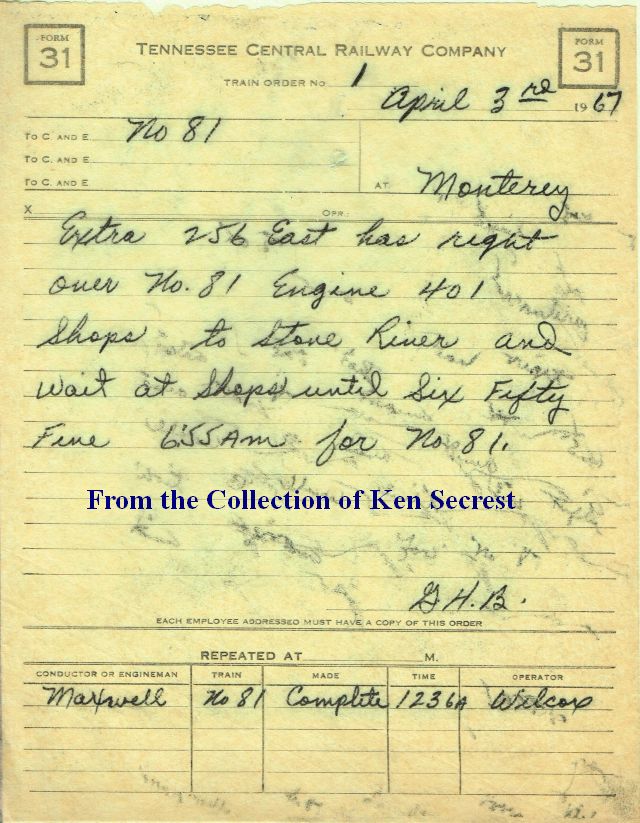 FORM 31
TENNESSEE CENTRAL RAILWAY COMPANY
FORM 31
TRAIN ORDER No 1
April 3rd 1967
TO C. AND E. No 81
TO C. AND E.
TO C. AND E.
AT Monterey
X OPR.
Extra 256 East has right
over No. 81 Engine 401
Shops to Stone River and
wait at Shops until Six Fifty
Five 6:55 AM for No 81.
From the Collection of Ken Secrest
G.H.B.
EACH EMPLOYEE ADDRESSED MUST HAVE A COPY OF THIS ORDER
REPEATED AT M.
CONDUCTOR OR ENGINEMAN TRAIN MADE TIME OPERATOR
Maxwell No 81 Complete 1236A Wilcox